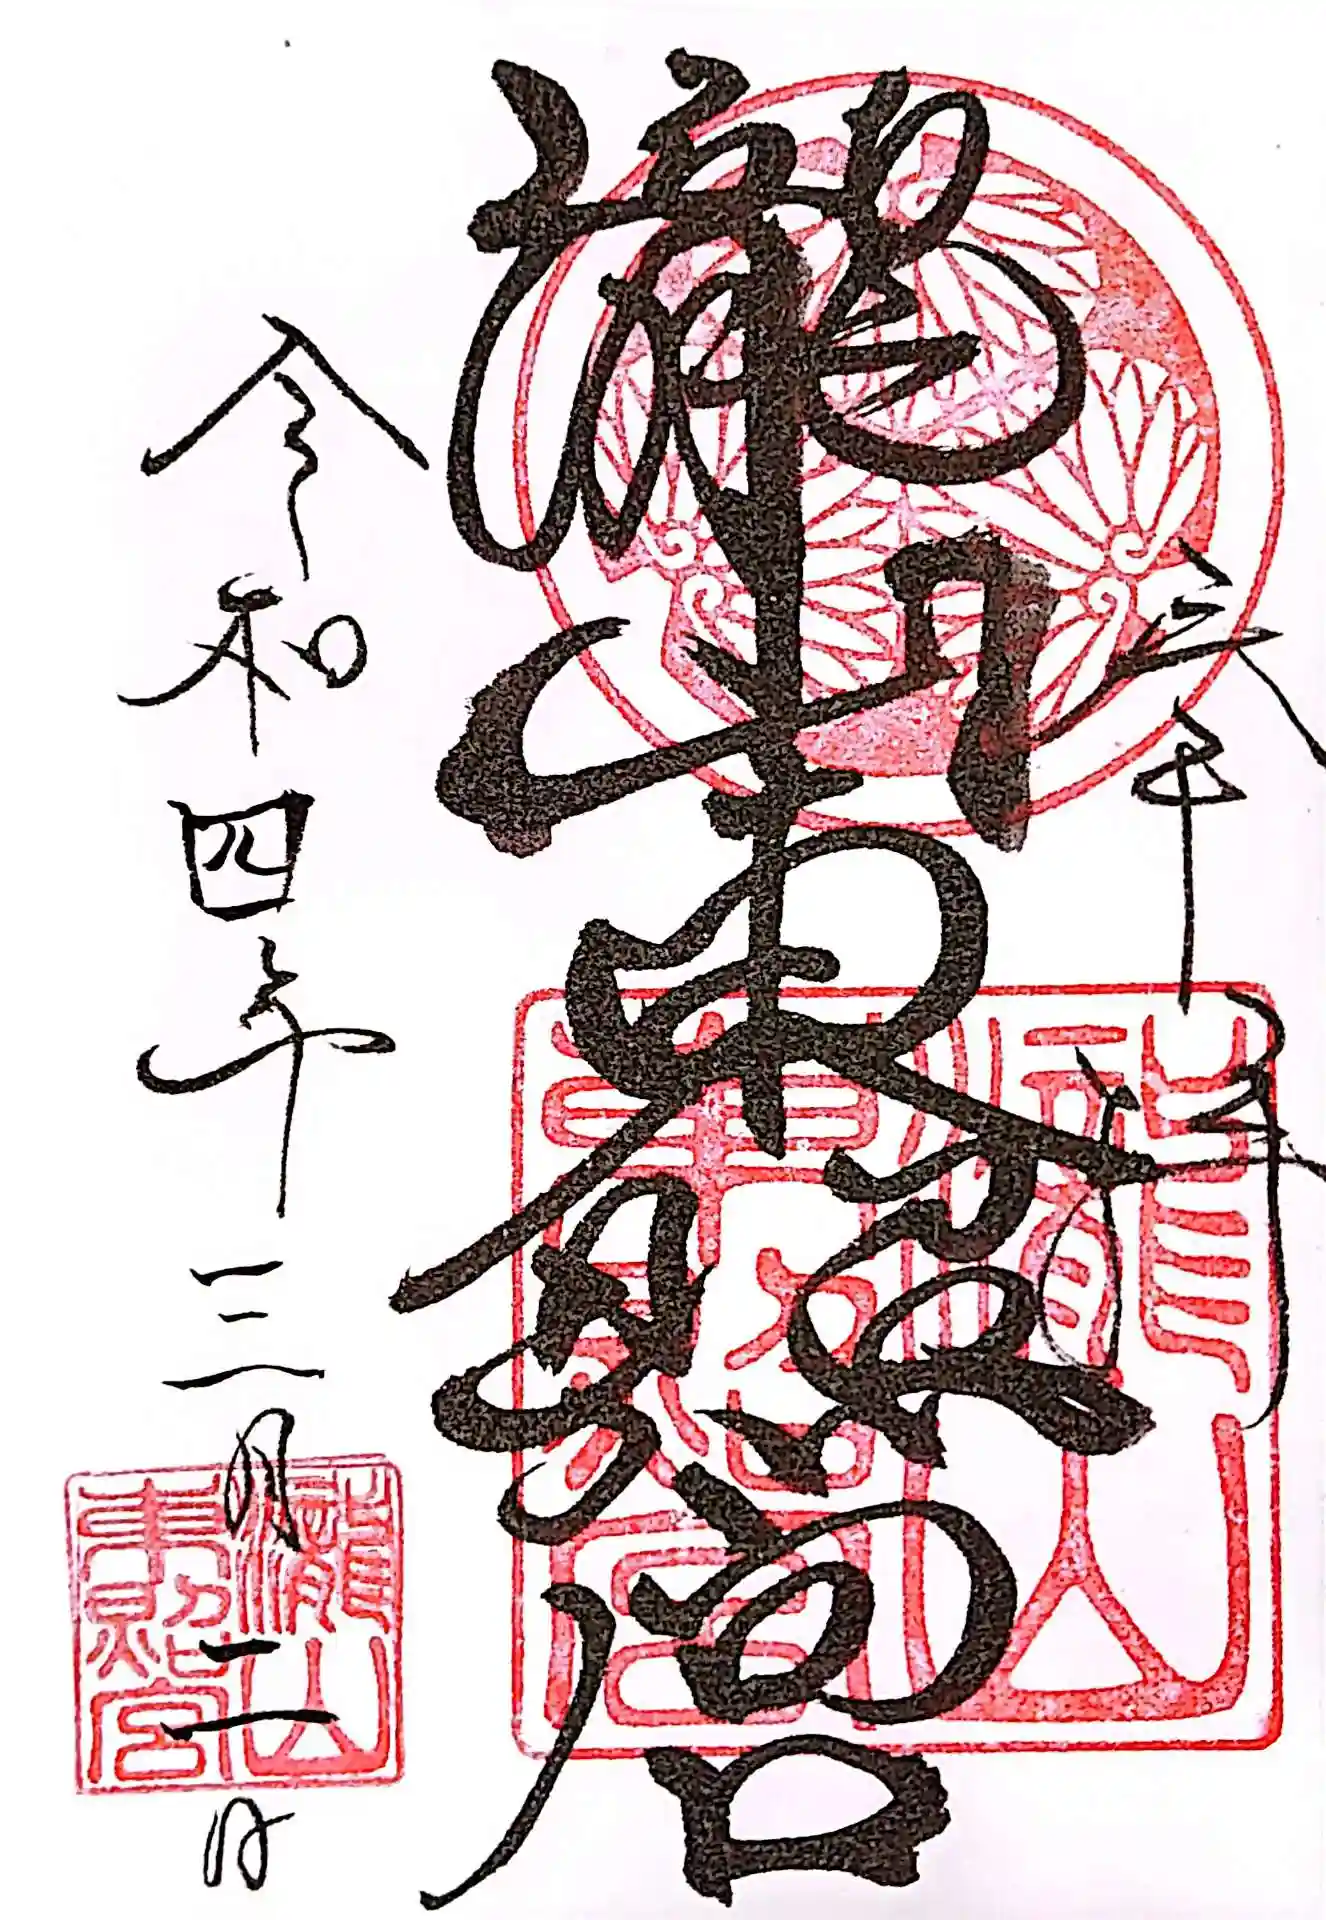 瀧山東照宮
瀧山
東照宮
令和四年三月二日
瀧山
東照宮